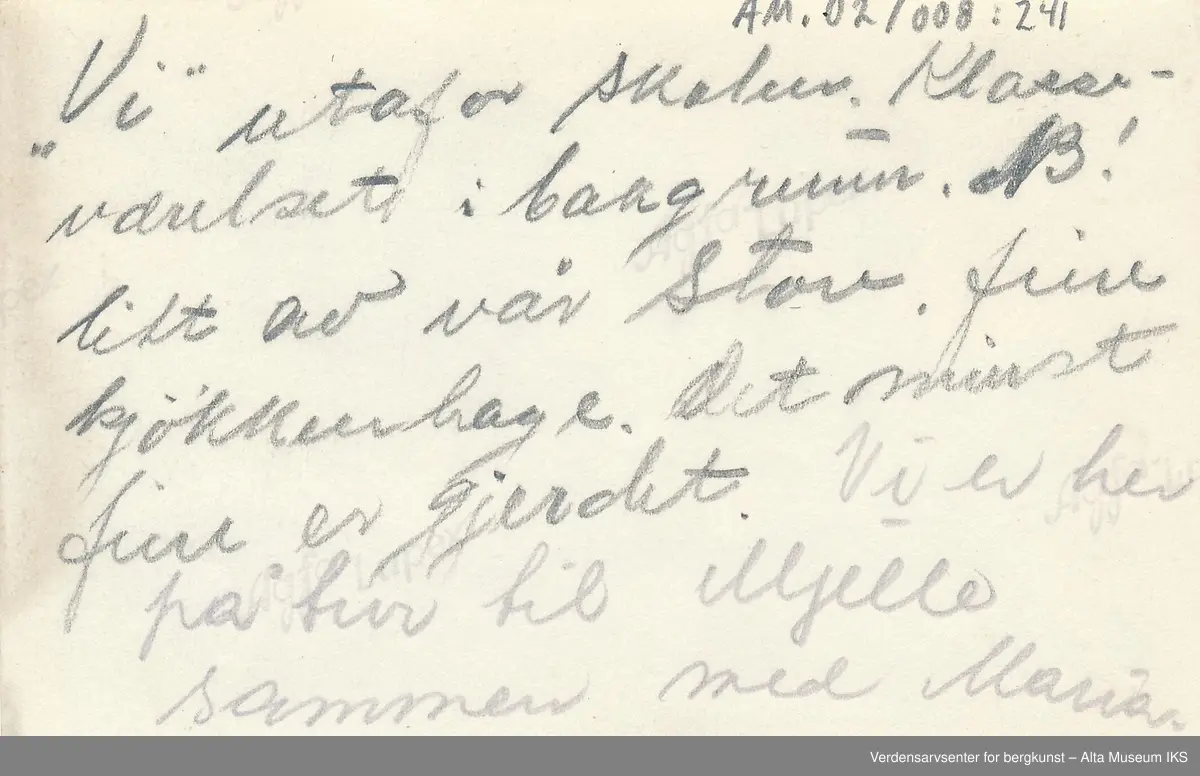 AM.02/008:241
„Vi" utafor skolen. Klasse-
værelset i bakgrunn. NB!
litt av vår store, fine
kjökkenhage. Det minst
fine er gjerdet. Vi er her
på tur til Mjelle
sammen med Maria.
Verdensarvsenter for bergkunst – Alta Museum IKS